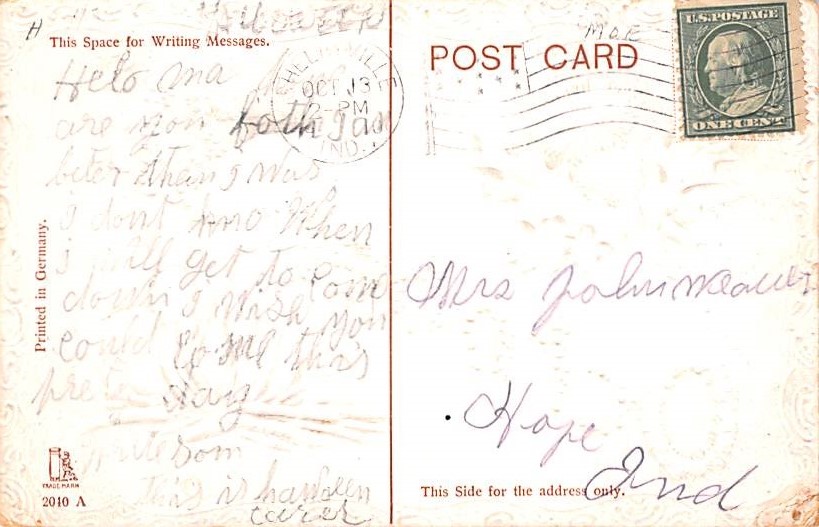 H
This Space for Writing Messages.
Helo ma
are you both I am
beter than I was
I dont kno When
I will get to com
down I wish you
could come this
prete day
write som
this is hawleen
carer
Printed in Germany.
TRADE MARK
2010 A
SHELBYVILLE
OCT 13
2-PM
IND.
Mae
POST CARD
U.S. POSTAGE
ONE CENT
Mrs John
Hope
Ind
This Side for the address only.